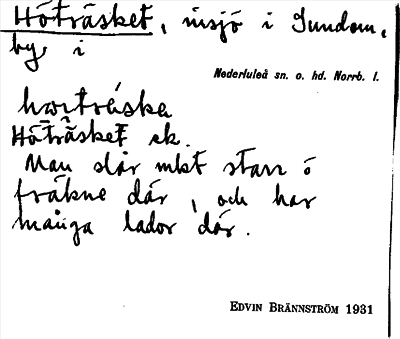 Höträsket, insjö i Sundom,
by i
Nederluleå sn. o. hd. Norrb. l.
Höträsket ek.
Man slår mkt starr o
fräkne där, och har
många lador där.
EDVIN BRÄNNSTRÖM 1931